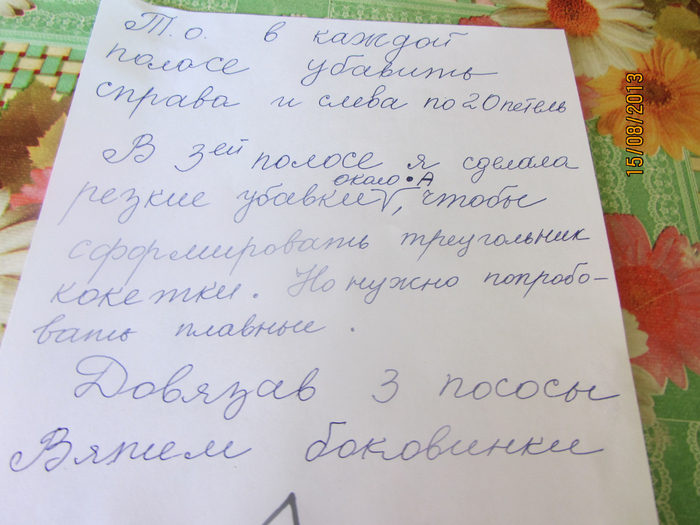 Т.о. в каждой
полосе убавить
справа и слева по 20 петель
В 3ей полосе я сделала
около •А
резкие убавки√, чтобы
сформировать треугольник
кокетки. Но нужно попробо-
вать плавные.
Довязав 3 пососы
Вяжем боковинки
15/08/2013